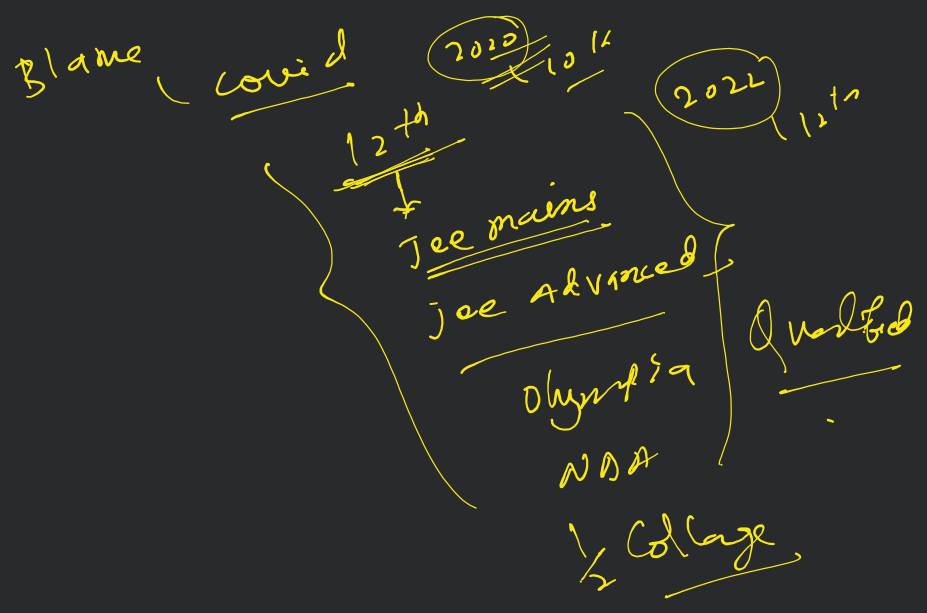 Blame
covid
2020
10th
2022
12th
12th
Jee mains
jee Advanced
Qualified
Olympia
NDA
1/2 Collage